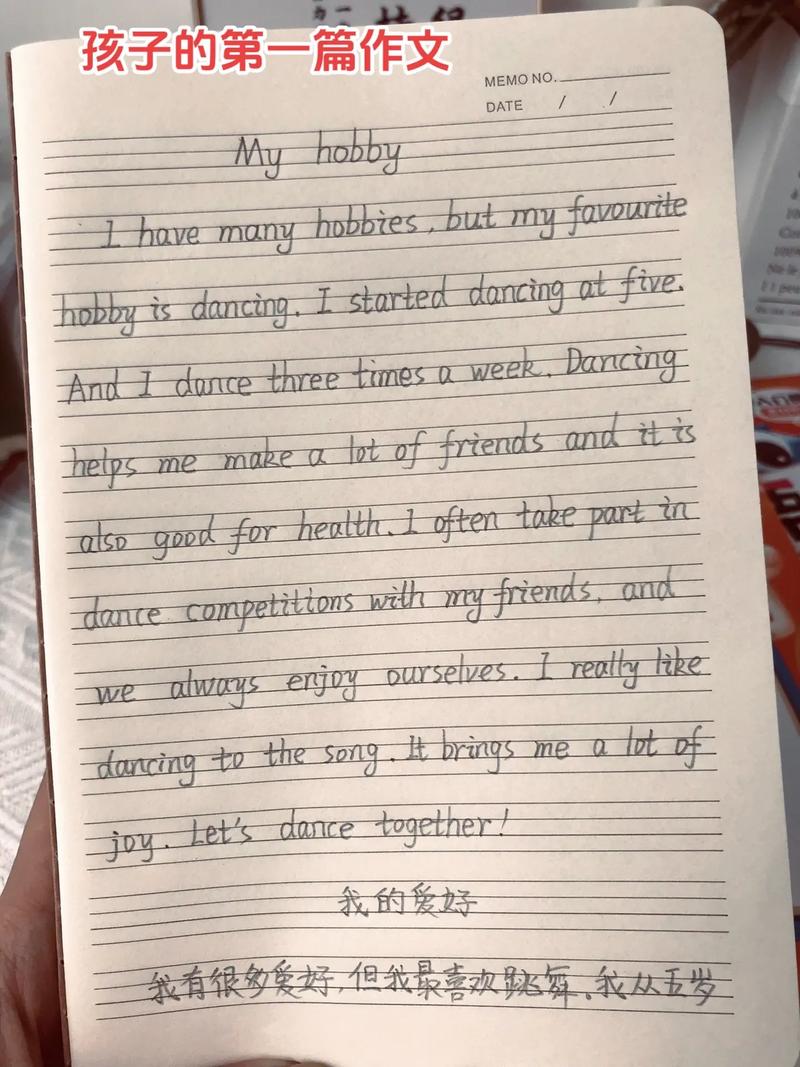 孩子的第一篇作文
MEMO NO.
DATE / /
My hobby
I have many hobbies, but my favourite
hobby is dancing. I started dancing at five.
And I dance three times a week. Dancing
helps me make a lot of friends and it is
also good for health. I often take part in
dance competitions with my friends, and
we always enjoy ourselves. I really like
dancing to the song. It brings me a lot of
joy. Let's dance together!
我的爱好
我有很多爱好,但我最喜欢跳舞。我从五岁